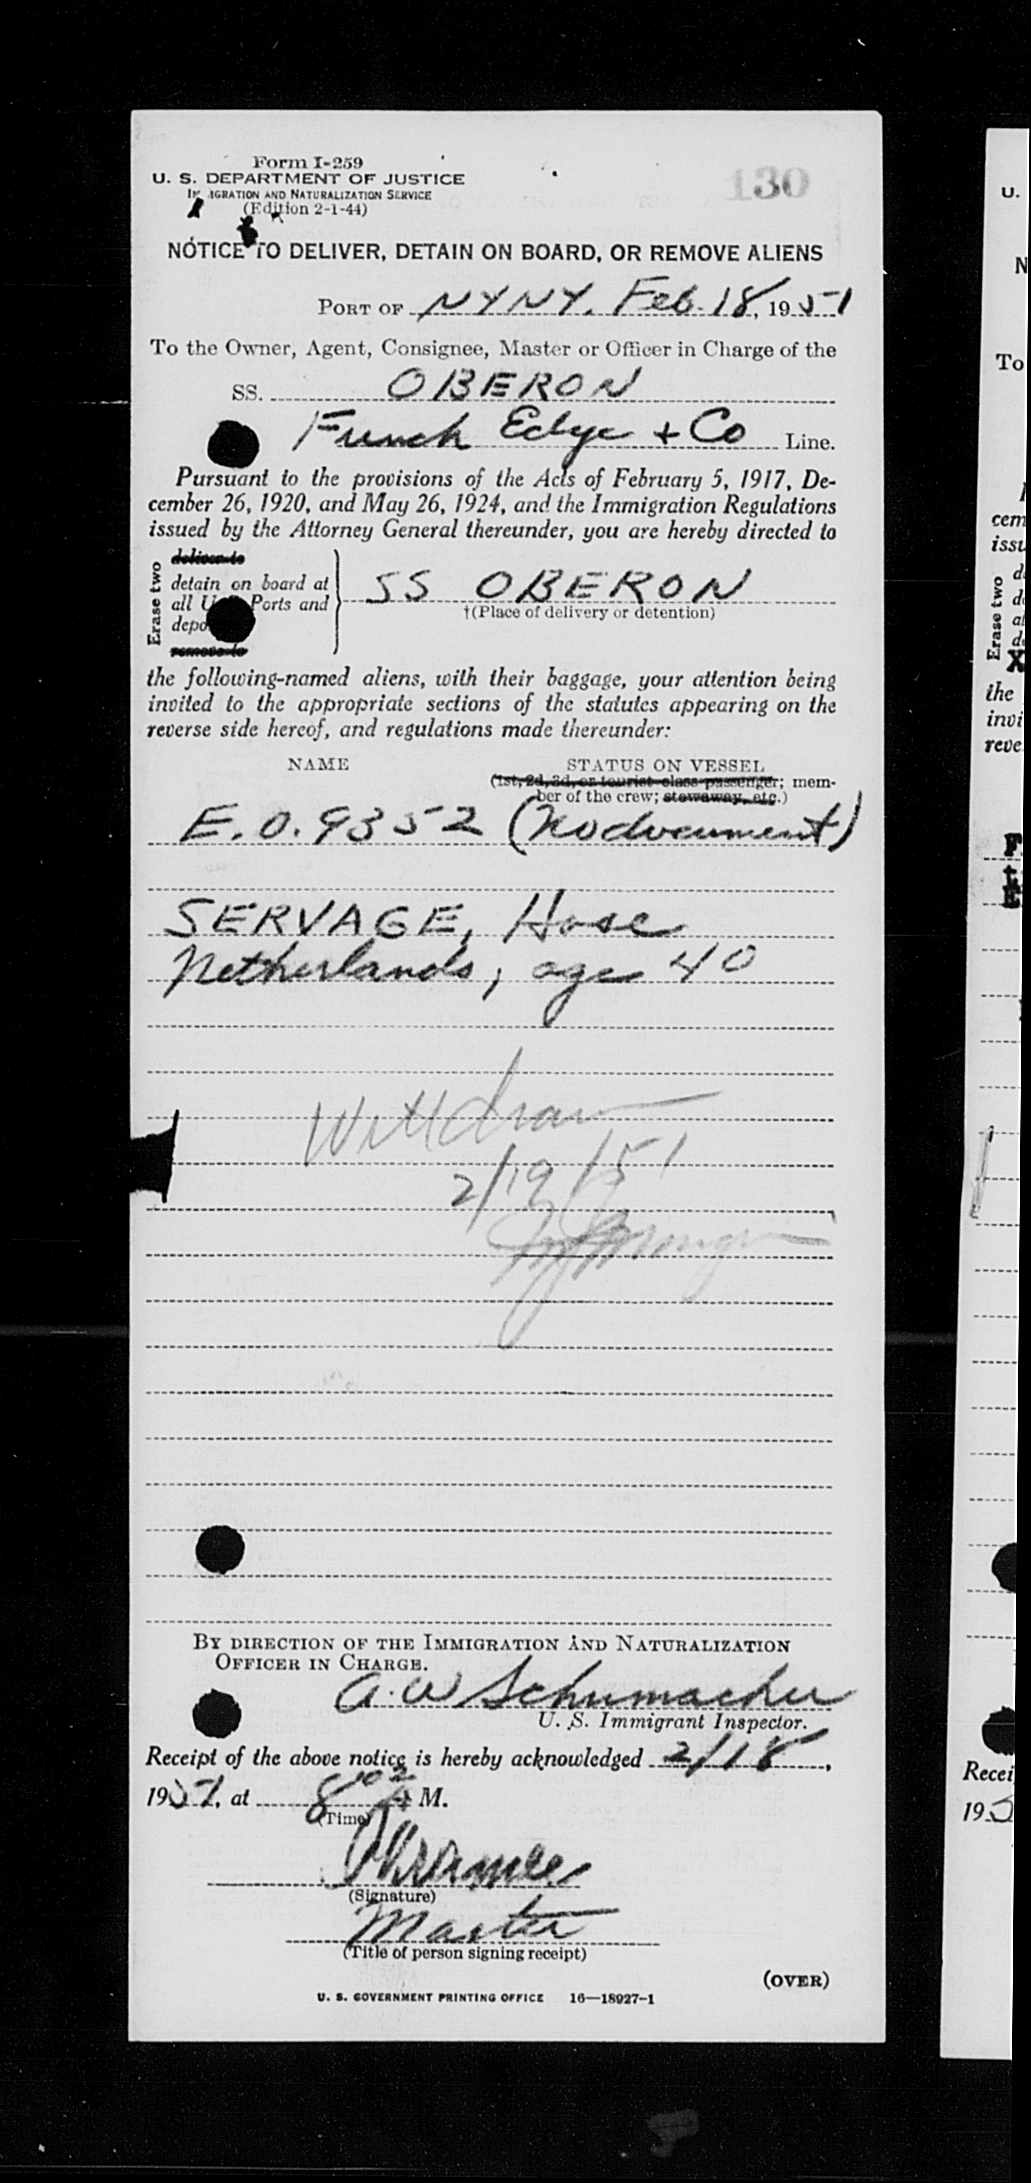 Form I-259
U. S. DEPARTMENT OF JUSTICE
IMMIGRATION AND NATURALIZATION SERVICE
(Edition 2-1-44)
130
NOTICE TO DELIVER, DETAIN ON BOARD, OR REMOVE ALIENS
PORT OF NYNY. Feb. 18, 1951
To the Owner, Agent, Consignee, Master or Officer in Charge of the
SS. OBERON
Funch Edye + Co Line.
Pursuant to the provisions of the Acts of February 5, 1917, De-
cember 26, 1920, and May 26, 1924, and the Immigration Regulations
issued by the Attorney General thereunder, you are hereby directed to
Erase two
deliver to
detain on board at
all U Ports and
depo
remove to
SS OBERON
†(Place of delivery or detention)
the following-named aliens, with their baggage, your attention being
invited to the appropriate sections of the statutes appearing on the
reverse side hereof, and regulations made thereunder:
NAME STATUS ON VESSEL
(1st, 2d, 3d, or tourist class passenger; mem-
ber of the crew; stowaway, etc.)
E.O. 9352 (No document)
SERVAGE, Hose
Netherlands, age 40
Withdrawn
2/19/51
BY DIRECTION OF THE IMMIGRATION AND NATURALIZATION
OFFICER IN CHARGE.
A. W Schumacher
U. S. Immigrant Inspector.
Receipt of the above notice is hereby acknowledged 2/18,
1951, at 8 02 A M.
(Time)
(Signature)
Master
(Title of person signing receipt)
(OVER)
U. S. GOVERNMENT PRINTING OFFICE 16—18927-1
U.
N
To
cem
issu
Erase two
X
the
invi
reve
Recei
195